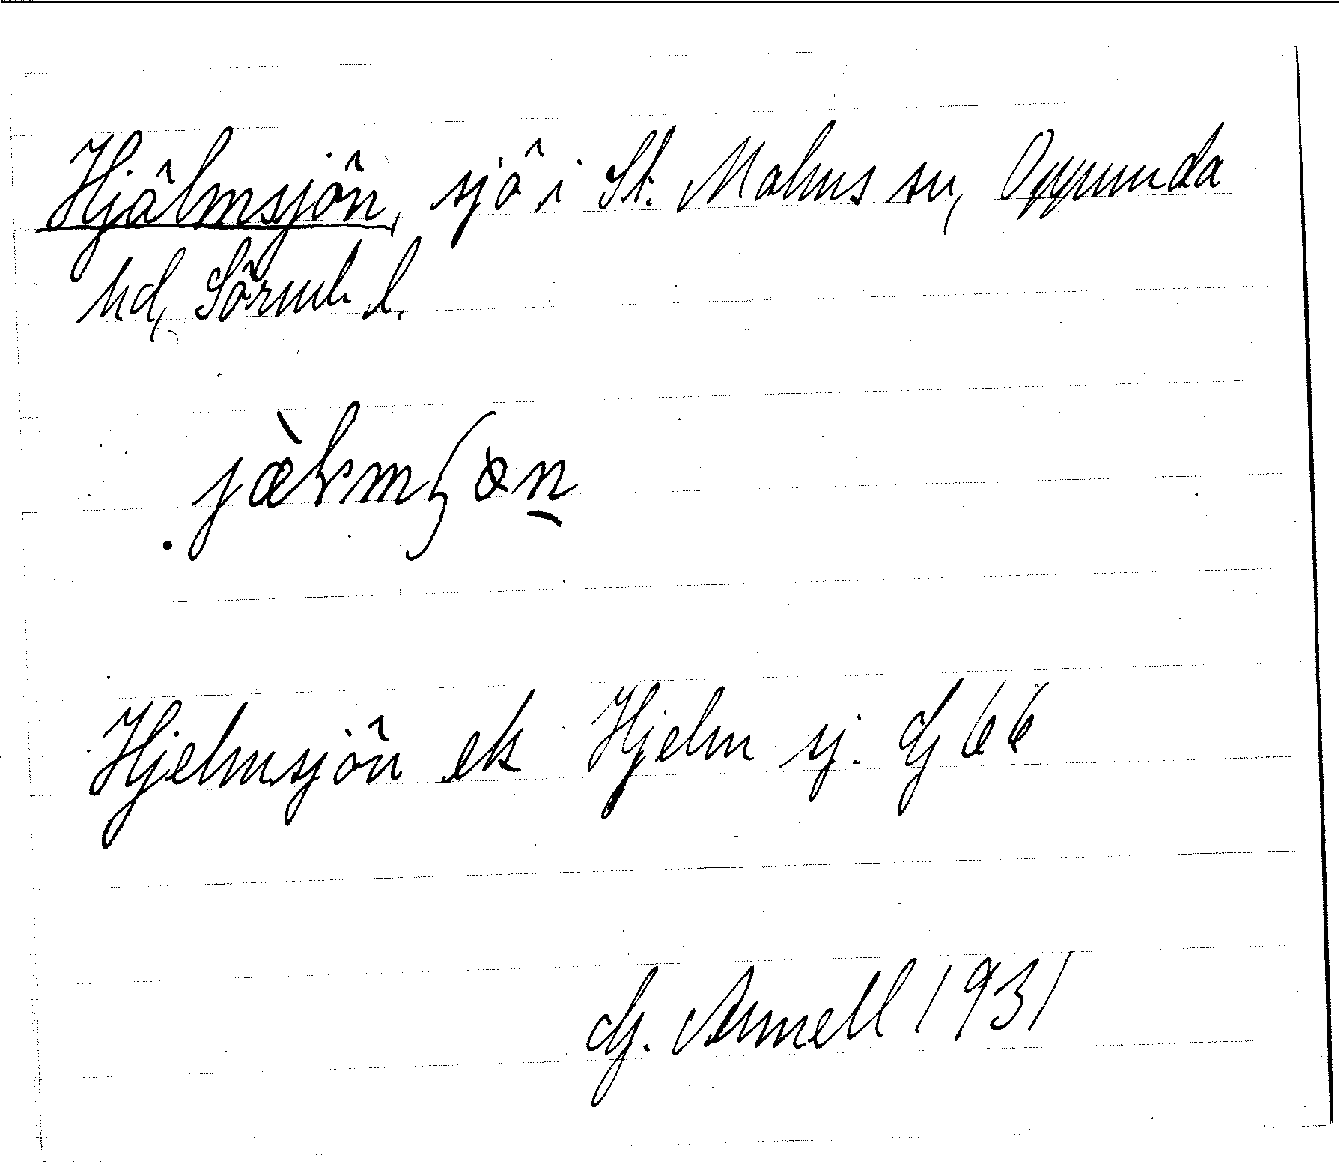 Hjälmsjön, sjö i St. Malms sn, Oppunda
hd, Sörml. l.
Hjelmsjön ek Hjelm sj. GJ 66
G. Annell 1931